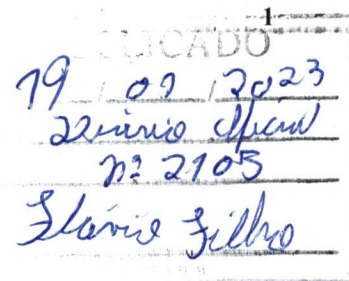 1
PUBLICADO
19 / 01 / 2023
Diário Oficial
nº 2105
Flávio Filho